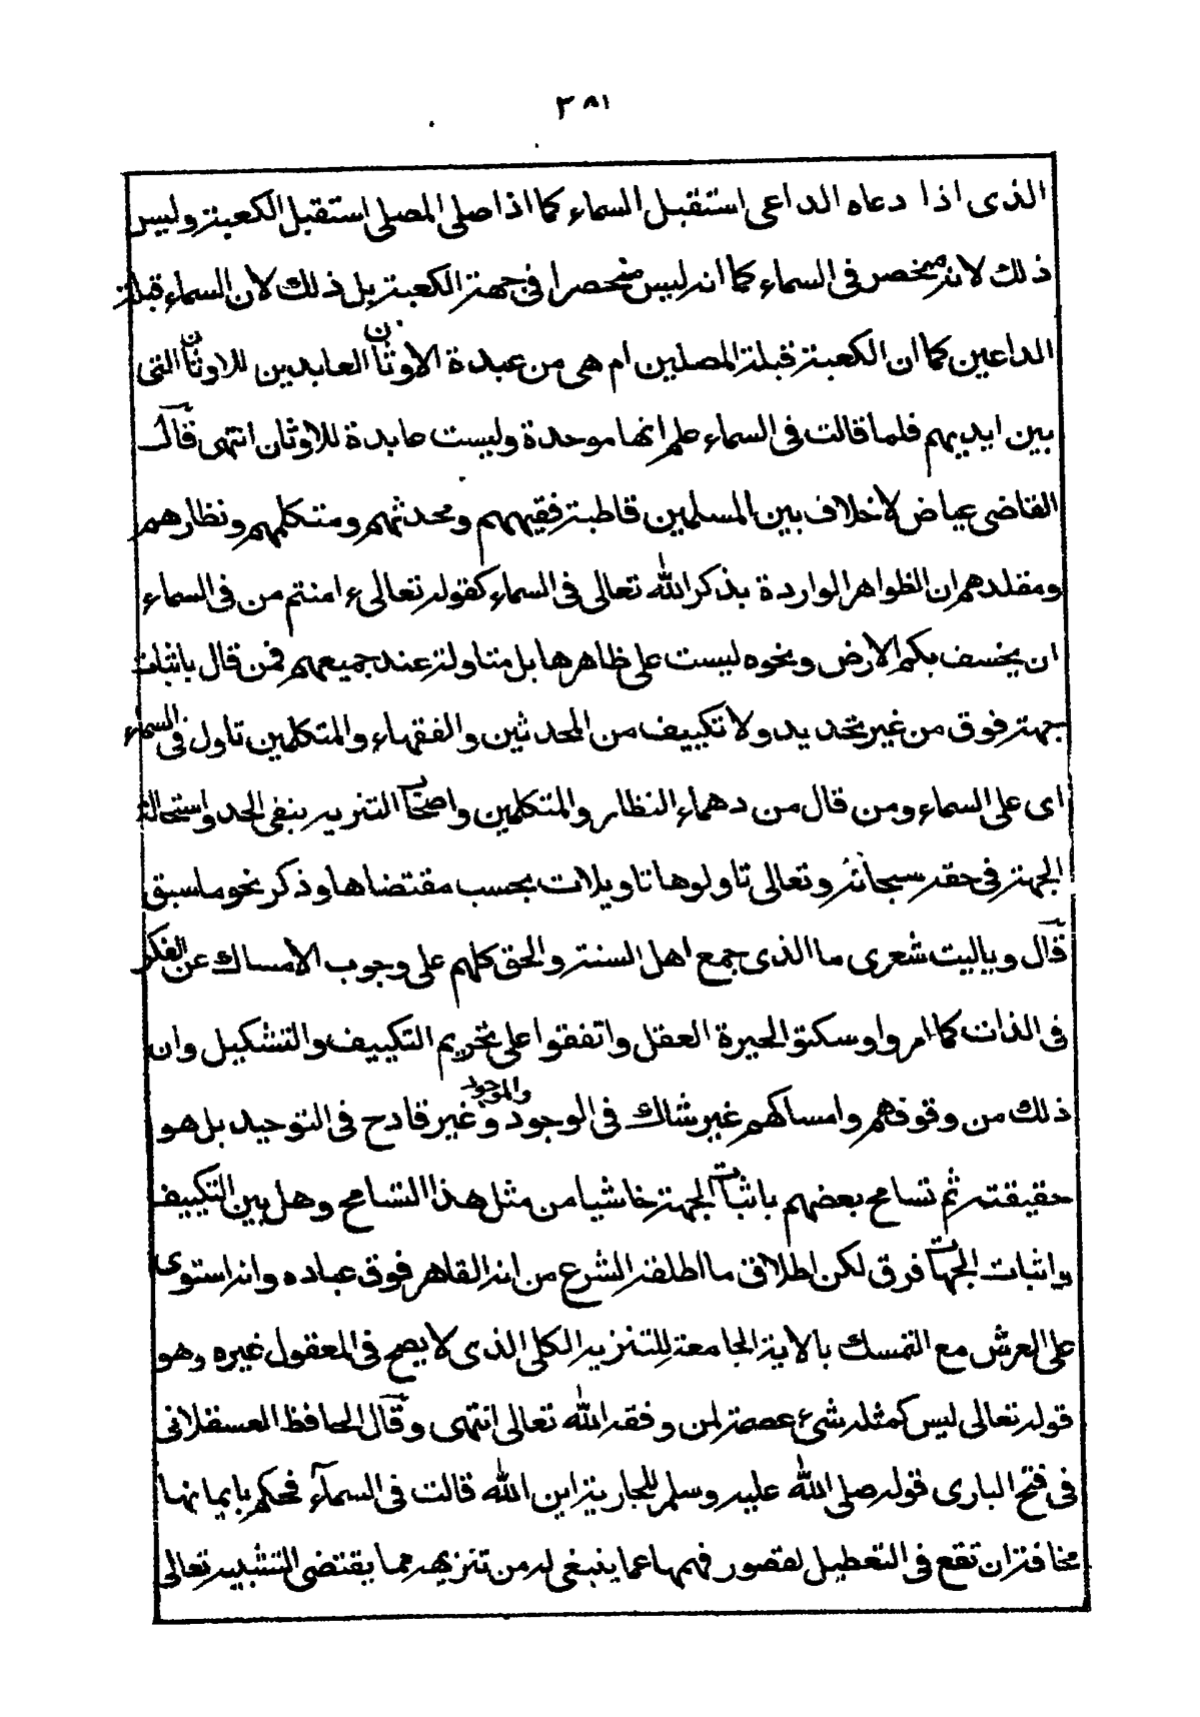 ٣٨١
الذى اذا دعاه الداعى استقبل السماء كما اذا صلى المصلى استقبل الكعبة وليس
ذلك لانه منحصر فى السماء كما انه ليس منحصرا فى جهة الكعبة بل ذلك لان السماء قبلة
الداعين كما ان الكعبة قبلة المصلين ام هى من عبدة الاوثان العابدين للاوثان التى
بين ايديهم فلما قالت فى السماء علم انها موحدة وليست عابدة للاوثان انتهى قال
القاضى عياض لاخلاف بين المسلمين قاطبة فقيههم ومحدثهم ومتكلمهم ونظارهم
ومقلدهم ان الظواهر الواردة بذكر الله تعالى فى السماء كقوله تعالى ءامنتم من فى السماء
ان يخسف بكم الارض ونحوه ليست على ظاهرها بل متاولة عند جميعهم فمن قال باثبات
جهة فوق من غير تحديد ولا تكييف من المحدثين والفقهاء والمتكلمين تاول فى السماء
اى على السماء ومن قال من دهماء النظار والمتكلمين واصحاب التنزيه بنفى الحد واستحالة
الجهة فى حقه سبحانه وتعالى تاولوها تاويلات بحسب مقتضاها وذكر نحو ما سبق
قال وياليت شعرى ما الذى جمع اهل السنة والحق كلهم على وجوب الامساك عن الفكر
فى الذات كما امروا وسكتوا لحيرة العقل واتفقوا على تحريم التكييف والتشكيل وان
ذلك من وقوفهم وامساكهم غير شاك فى الوجود والموجود وغير قادح فى التوحيد بل هو
حقيقته ثم تسامح بعضهم باثبات الجهة خاشيا من مثل هذا التسامح وهل بين التكييف
واثبات الجهات فرق لكن اطلاق ما اطلقه الشرع من انه القاهر فوق عباده وانه استوى
على العرش مع التمسك بالاية الجامعة للتنزيه الكلى الذى لا يصح فى المعقول غيره وهو
قوله تعالى ليس كمثله شىء عصمة لمن وفقه الله تعالى انتهى وقال الحافظ العسقلانى
فى فتح البارى قوله صلى الله عليه وسلم للجارية اين الله قالت فى السمآء فحكم بايمانها
مخافة ان تقع فى التعطيل لقصور فهمها عما ينبغى له من تنزيهه مما يقتضى التشبيه تعالى